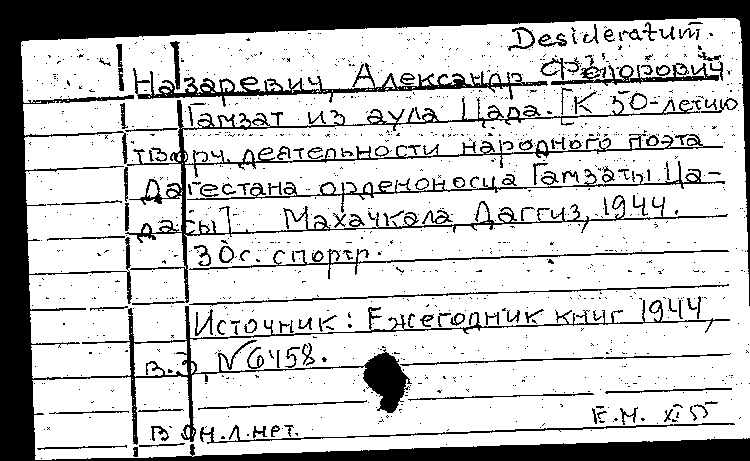 Desideratum.
Назаревич, Александр Федорович.
Гамзат из аула Цада. [К 50-летию
творч. деятельности народного поэта
Дагестана орденоносца Гамзаты Ца-
дасы]. Махачкала, Даггиз, 1944.
30 с. с портр.
Источник: Ежегодник книг 1944,
в. 3, №6458.
В ОН.Л. нет.
Е.М. XI 55